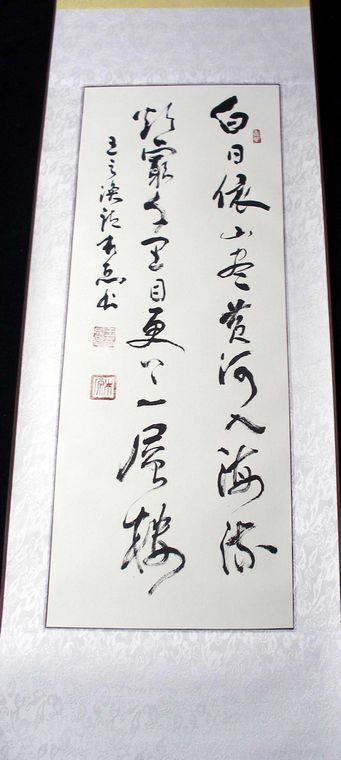 白日依山尽黄河入海流
欲穷千里目更上一层楼
王之涣诗